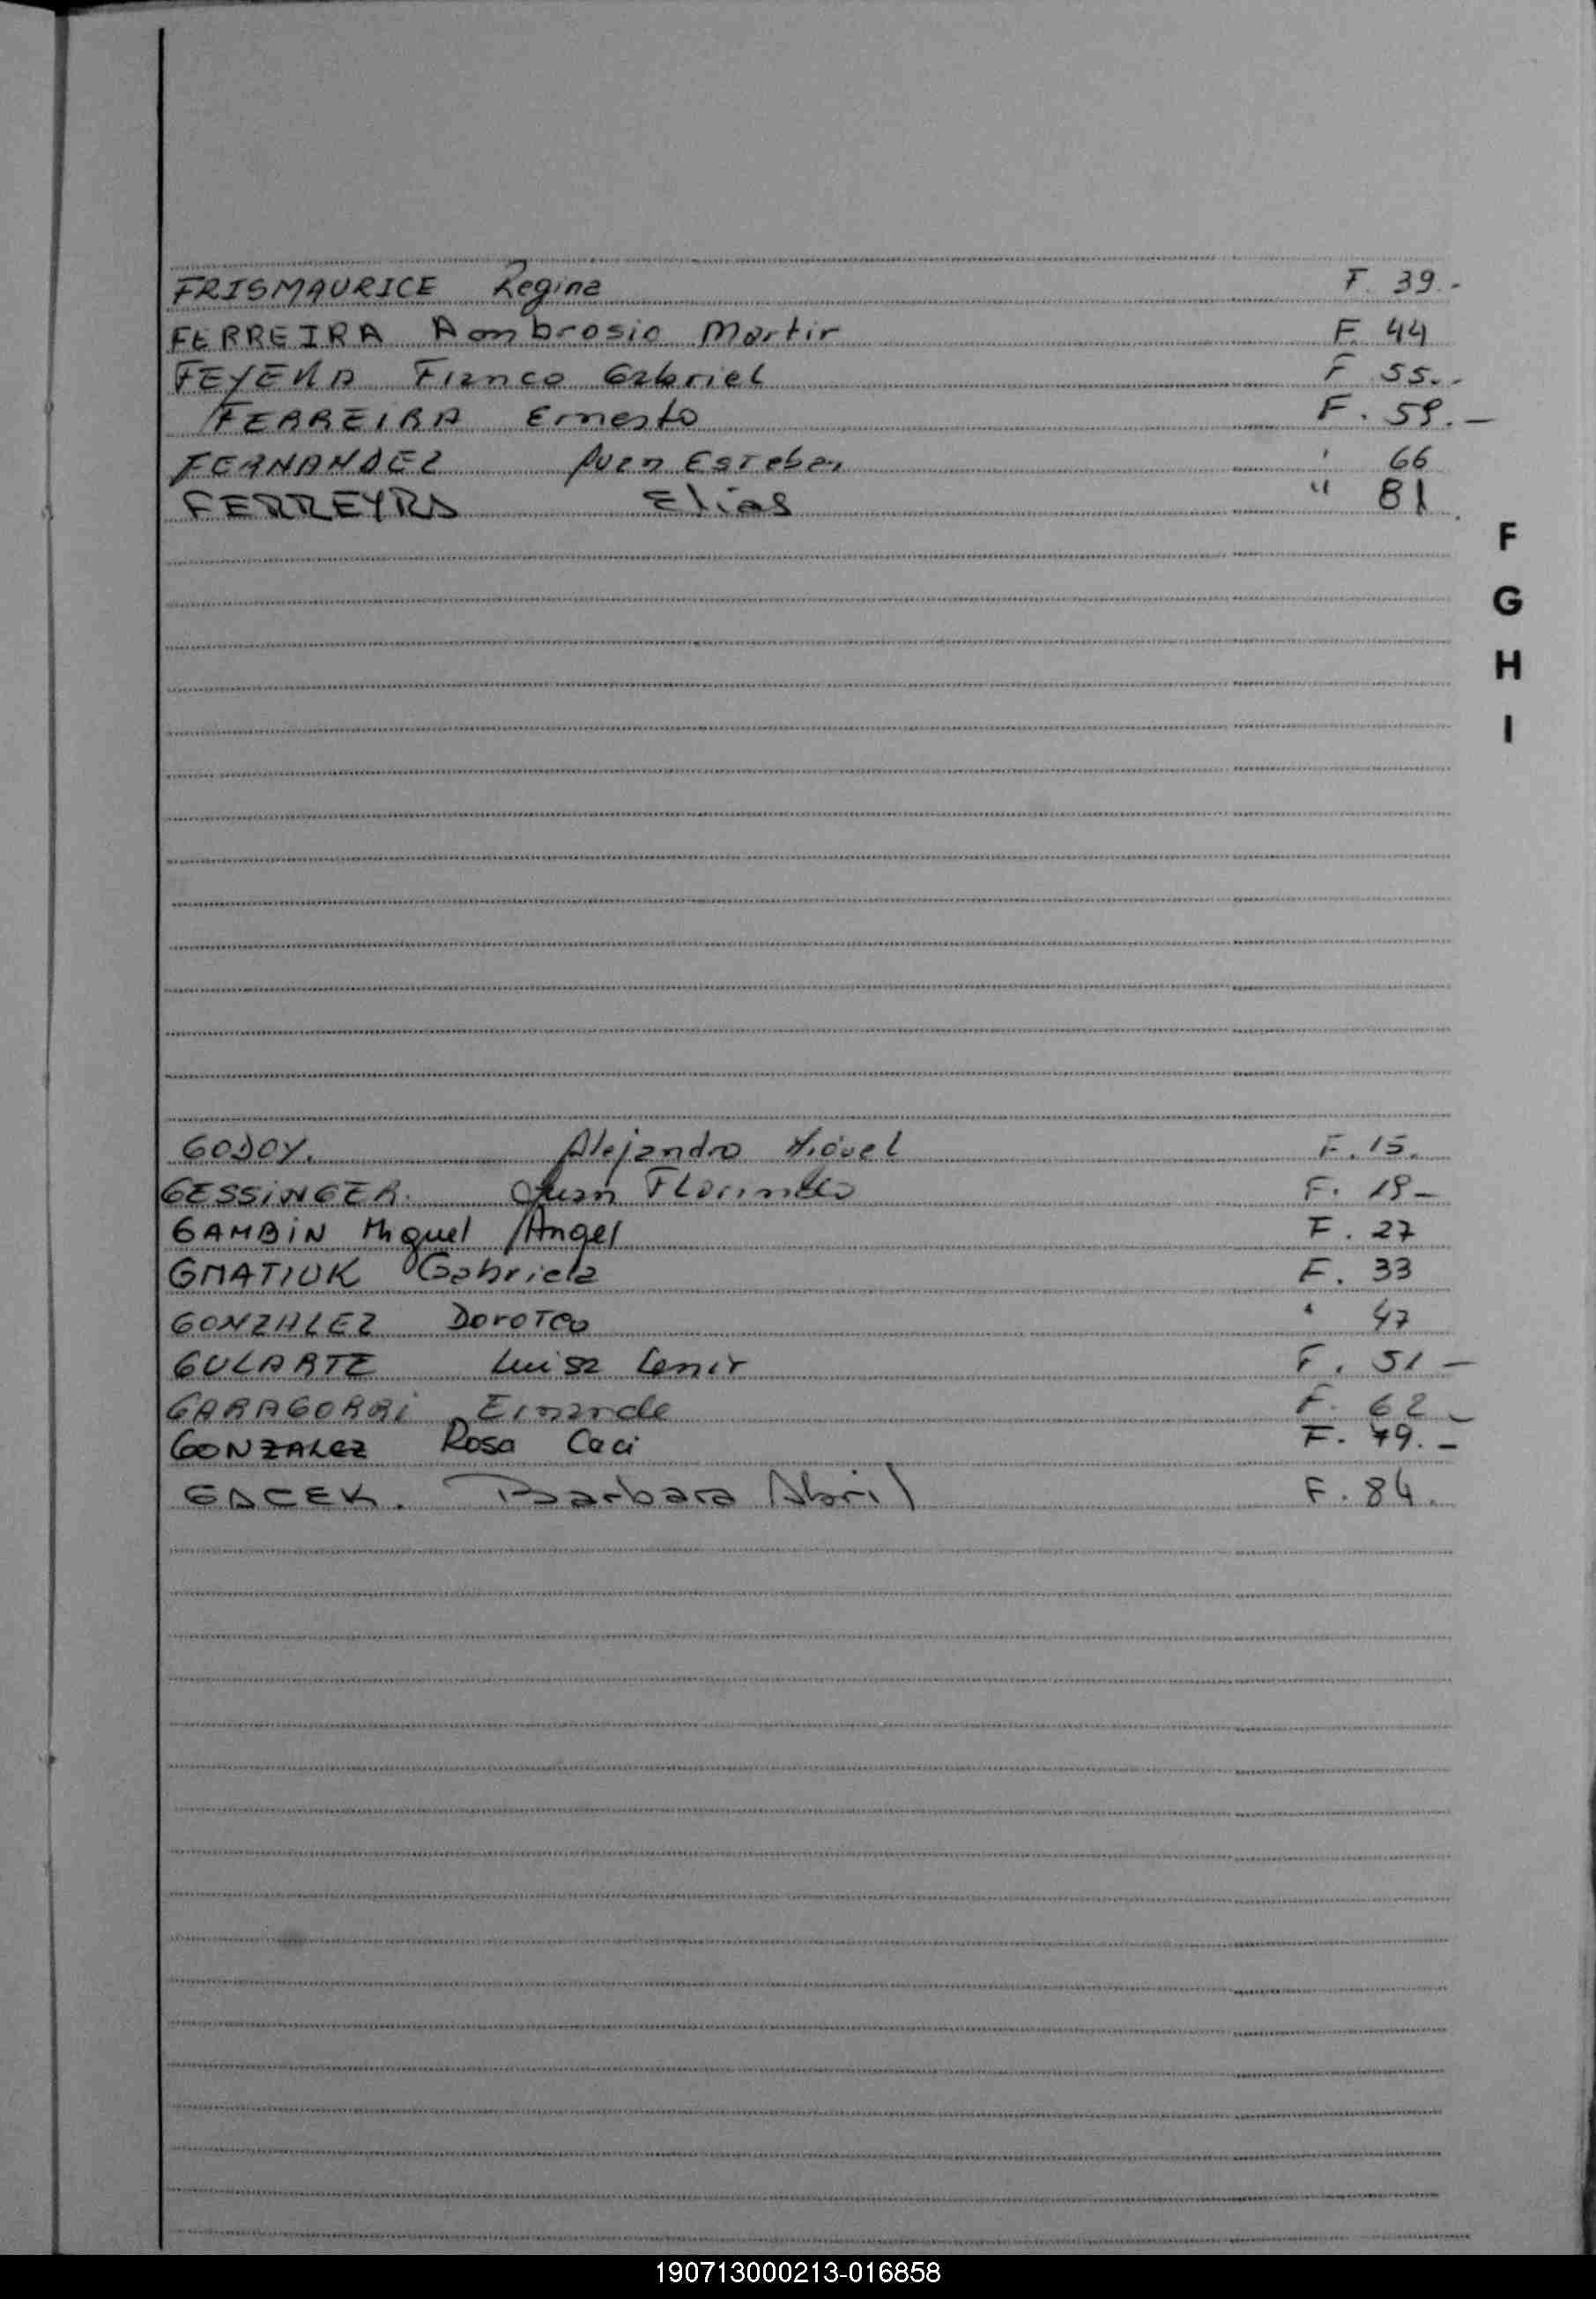 FRISMAURICE Regina F. 39.-
FERREIRA Ambrosio Martir F. 44
FEYEHA Franco Gabriel F 55.-
FERREIRA Ernesto F. 59.-
FERNANDEZ Juan Esteban " 66
FERREYRA Elias " 81
F
G
H
I
GODOY. Alejandro Miguel F. 15.
GESSINGER. Juan F. 19-
GAMBIN Miguel Angel F. 27
GMATIUK Gabriela F. 33
GONZALEZ DOROTEO " 47
GULARTE Luisa Lenir F. 51-
GARAGORRI F. 62-
GONZALEZ Rosa Ceci F. 79.-
GACEK. Barbara Abril F. 84.
190713000213-016858